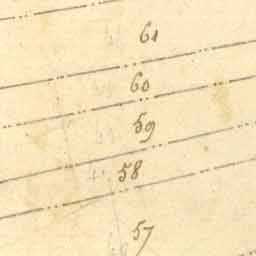 61
60
59
58
57